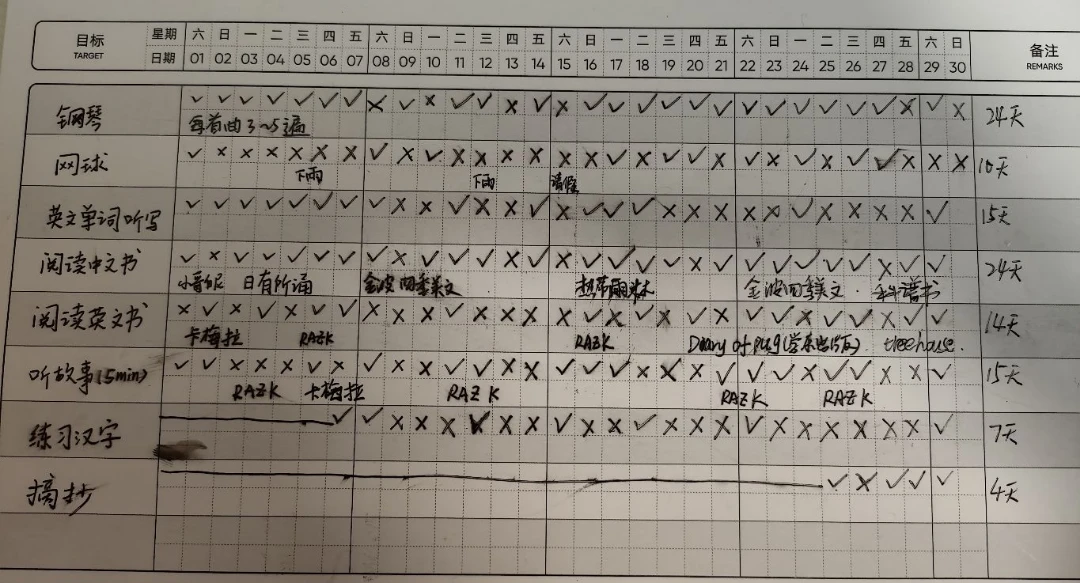 目标 星期 六 日 一 二 三 四 五 六 日 一 二 三 四 五 六 日 一 二 三 四 五 六 日 一 二 三 四 五 六 日 备注
TARGET 日期 01 02 03 04 05 06 07 08 09 10 11 12 13 14 15 16 17 18 19 20 21 22 23 24 25 26 27 28 29 30 REMARKS
钢琴 24天
每首曲3~5遍
网球 10天
下雨 下雨 请假
英文单词听写 15天
阅读中文书 24天
日有所诵 金波四季美文 金波四季美文
阅读英文书 14天
卡梅拉 RAZK RAZK Diary of Pug treehouse.
听故事(15min) 15天
RAZK 卡梅拉 RAZK RAZK RAZK
练习汉字 7天
摘抄 4天